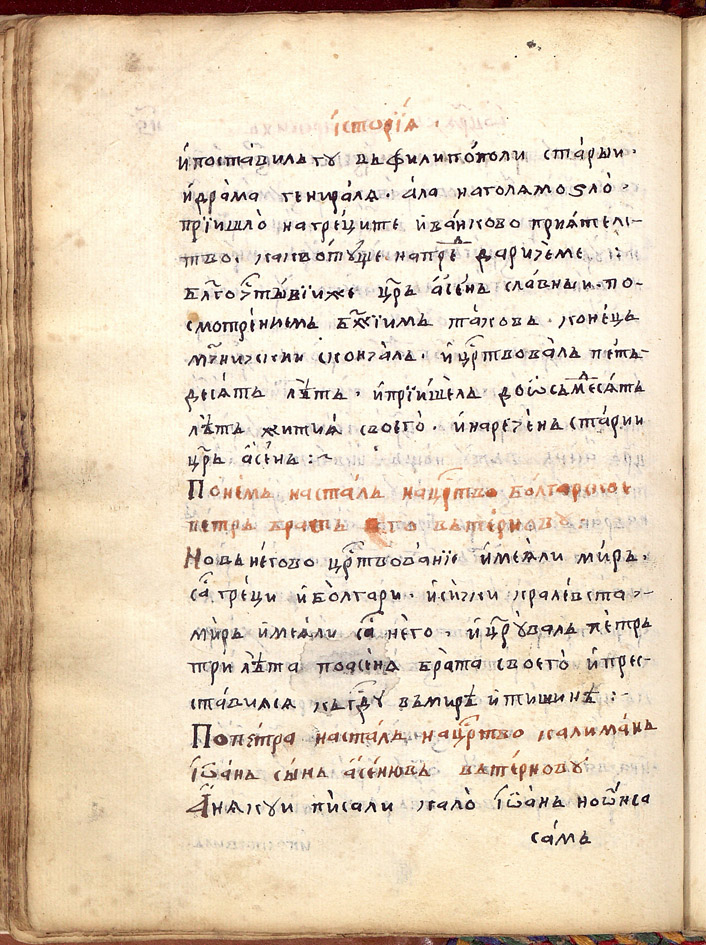 історїꙗ ·
и҆поставилъ ту въ филипо́поли ста́рыи ·
и҆дра́ма генира́ла · а҆ла наголѧмо ѕло̀ ·
прїишло̀ на гре́ците и҆ва́нково прїѧтелс-
тво ·
бл҃гоч⁠тⷭ҇ивїи же цр҃ь а҆се́нь сла́вныи · по-
смотре́нїемъ бж҃їимъ такоⷡ · коне́цъ
мч҃нически скончалъ · и҆ цр҃твовалъ петъ-
десѧтъ лѣтъ · и҆ прїише́лъ до ѻ҆съмⷣесѧтъ
лѣтъ житиѧ своего̀ · и҆ наречень ста́рии
цр҃ь а҆се́нь :~
По не́мъ наста́лъ на цр҃тво болгарское
петръ братъ его въ те́рновꙋ
Но въ не́гово цр҃твова́нїе и҆меѧли ми́ръ ·
саⷭ гре́ци и҆ бо́лгари · и҆ си́чки крале́вста -
ми́ръ и҆меѧли саⷭ не́го · и҆ цр҃ꙋ́валъ пе́тръ
три лѣта по а҆се́нѧ бра́та своего̀ и҆ прес-
ставилсѧ къ гдⷭ҇ꙋ въ ми́рѣ и҆ тишинѣ :~
По пе́тра наста́лъ на цр҃тво калима́нъ
і҆ѡа́нъ сы́нъ а҆се́нювъ въ те́рновꙋ
А҆ нѧкꙋи пи́сали кало̀ і҆ѡа́нъ но ѡ҆́нса
са́мъ